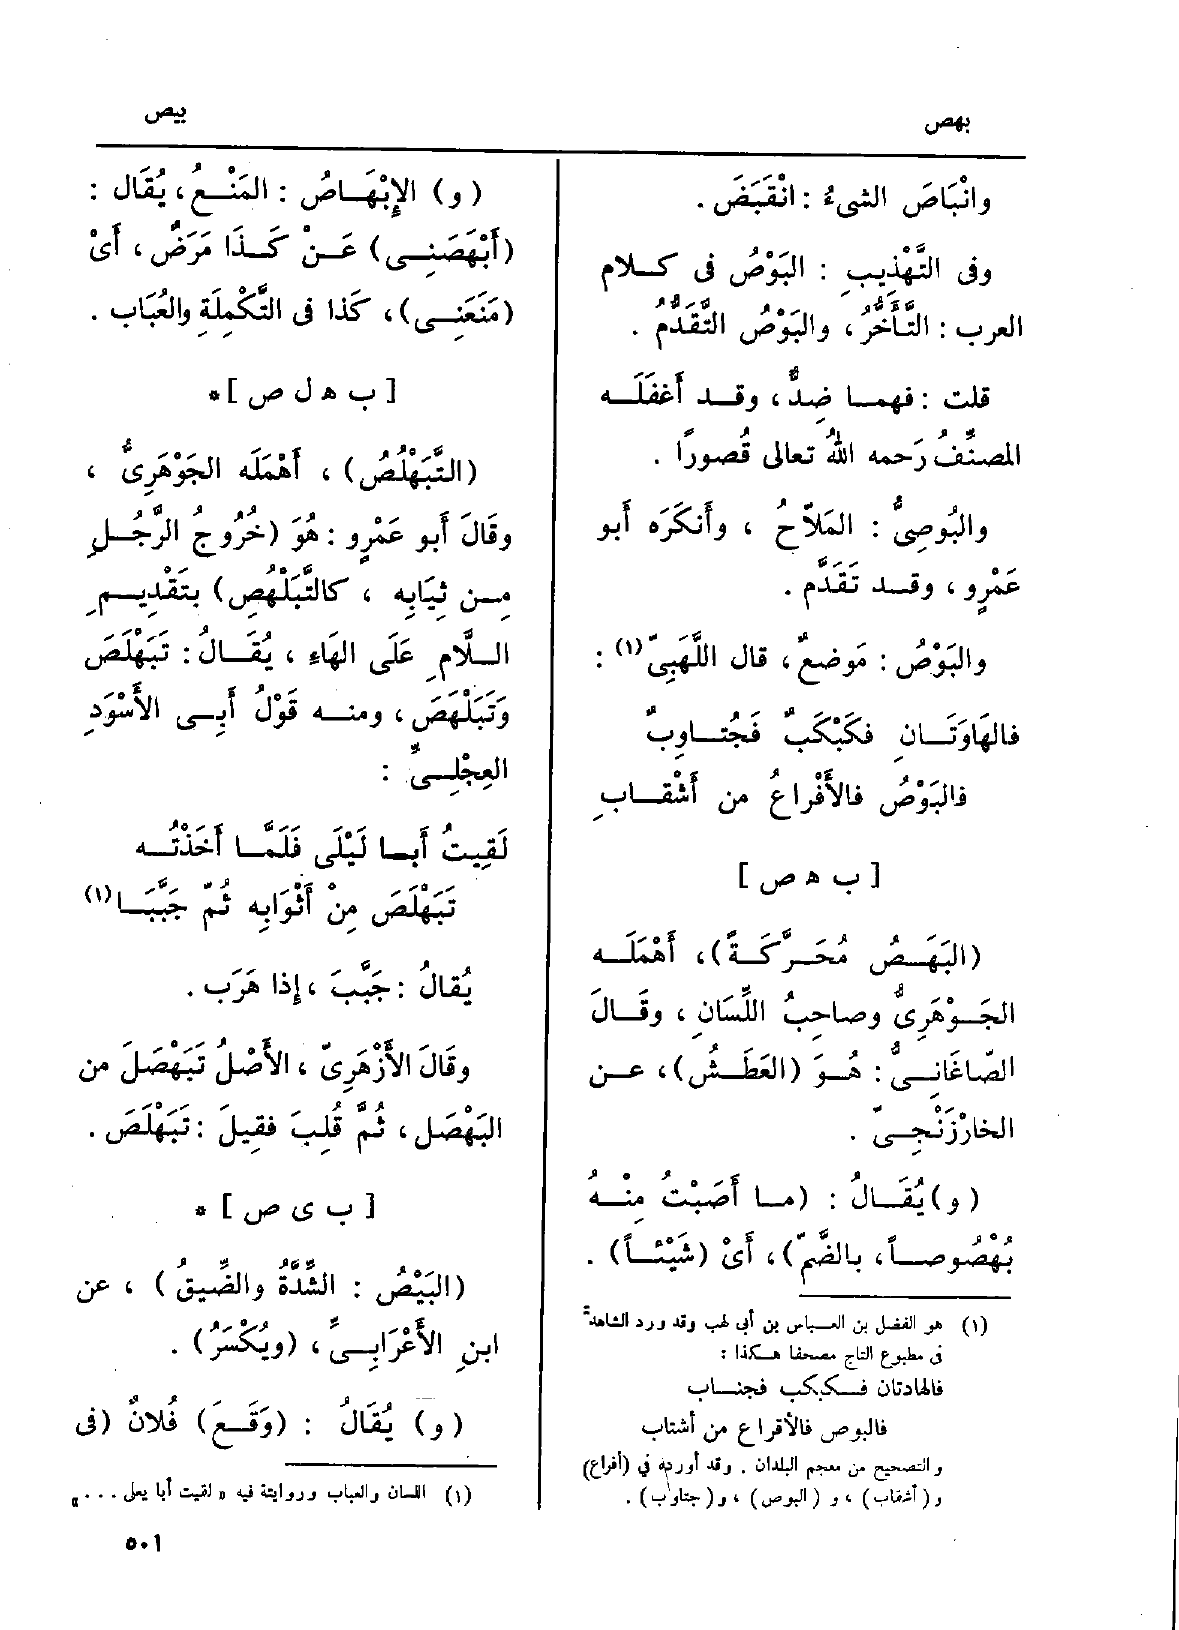 بهص
بيص
وانْبَاصَ الشىءُ : انْقَبَضَ .
وفى التَّهْذِيبِ : البَوْصُ فى كـلام
العرب : التَّأَخُّرُ ، والبَوْصُ التَّقَدُّم .
قلت : فهمـا ضِدٌّ ، وقـد أَغفَلَـه
المصنِّفُ رَحمه اللهُ تعالى قُصورًا .
والبُوصِىُّ : المَلاّحُ ، وأَنكَرَه أَبو
عَمْرٍو ، وقـد تَقَدَّم .
والبَوْصُ : مَوضعٌ ، قال اللَّهَبِىّ (١) :
فالهَاوَتَـانِ فكَبْكَبٌ فَجُتـاوِبٌ
فالبَوْصُ فالأَفْراعُ من أَشْقـابِ
[ ب ه ص ]
(البَهَـصُ مُحَـرَّكَـةً) ، أَهْمَلَـه
الجَـوْهَرِىُّ وصاحِبُ اللِّسَانِ ، وقَـالَ
الصّاغَانِـىُّ : هُـوَ (العَطَـشُ) ، عـن
الخارْزَنْجِـىّ .
(و) يُقَـالُ : (مـا أَصَبْتُ مِنْـهُ
بُهْصُوصـاً ، بالضَّمّ) ، أَىْ (شَيْئـاً) .
(١) هو الفضل بن العـباس بن أبى لهب وقد ورد الشاهد
فى مطبوع التاج مصحفا هـكذا :
فالهادتان فـكبكب فجنـاب
فالبوص فالأقراع من أشتاب
والتصحيح من معجم البلدان . وقد أورده في (أفراع)
و (أشقاب) ، و (البوص) ، و (جتاوب) .
(و) الإِبْهَـاصُ : المَنْـعُ ، يُقَال :
(أَبْهَصَنِـى) عَـنْ كَـذَا مَرَضٌ ، أَىْ
(مَنَعَنِـى) ، كَذا فى التَّكْمِلَةِ والعُبَاب .
[ ب ه ل ص ] *
(التَّبَهْلُصُ) ، أَهْمَلَه الجَوْهَرِىُّ ،
وقَالَ أَبو عَمْرٍو : هُوَ (خُرُوجُ الرَّجُـلِ
مِـن ثِيَابِه ، كالتَّبَلْهُصِ) بتَقْدِيـمِ
الـلَّامِ عَلَى الهَاءِ ، يُقَـالُ : تَبَهْلَصَ
وَتَبَلْهَصَ ، ومنـه قَوْلُ أَبِـى الأَسْوَدِ
العِجْلِـىِّ :
لَقِيتُ أَبـا لَيْلَى فَلَمَّـا أَخَذْتُـه
تَبَهْلَصَ مِنْ أَثْوَابِه ثُمّ جَبَّبَـا (١)
يُقالُ : جَبَّبَ ، إِذا هَرَب .
وقَالَ الأَزْهَرِىّ ، الأَصْلُ تَبَهْصَلَ من
البَهْصَل ، ثُمَّ قُلِبَ فقيلَ : تَبَهْلَصَ .
[ ب ى ص ] *
(البَيْصُ : الشدَّةُ والضِّيقُ) ، عن
ابنِ الأَعْرَابِـىِّ ، (ويُكْسَرُ) .
(و) يُقَالُ : (وَقَـعَ) فُلانٌ (فى
(١) اللسان والعباب وروايتة فيه « لقيت أبا يعلى . . . . »
٥٠١